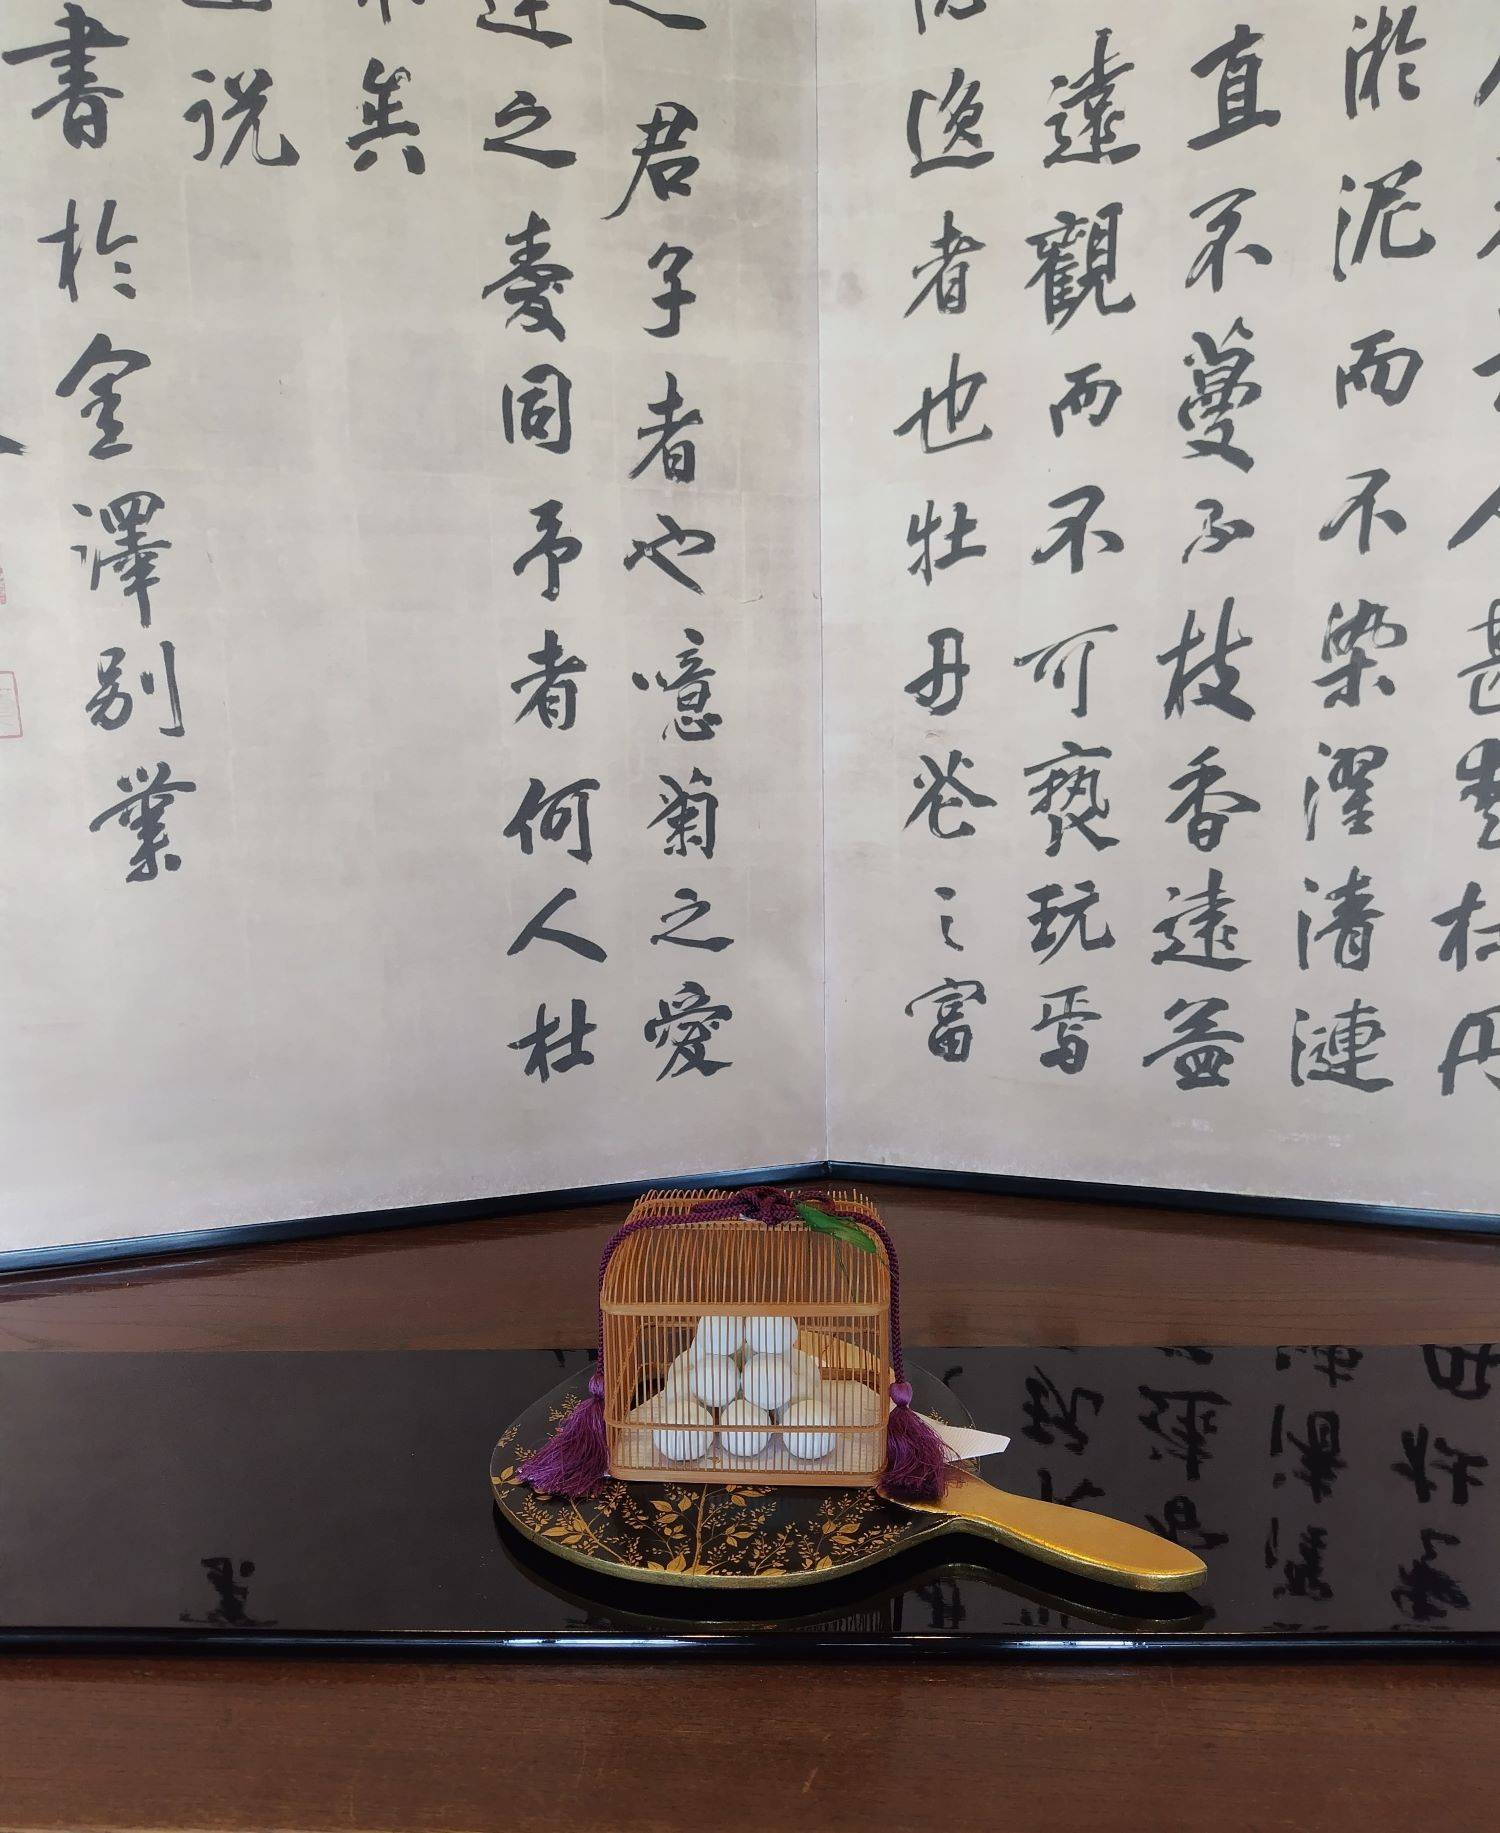 人甚愛牡丹
淤泥而不染濯清漣
直不蔓不枝香遠益
遠觀而不可褻玩焉
逸者也牡丹花之富
君子者也噫菊之愛
蓮之愛同予者何人牡
矣
説
書於金澤別業